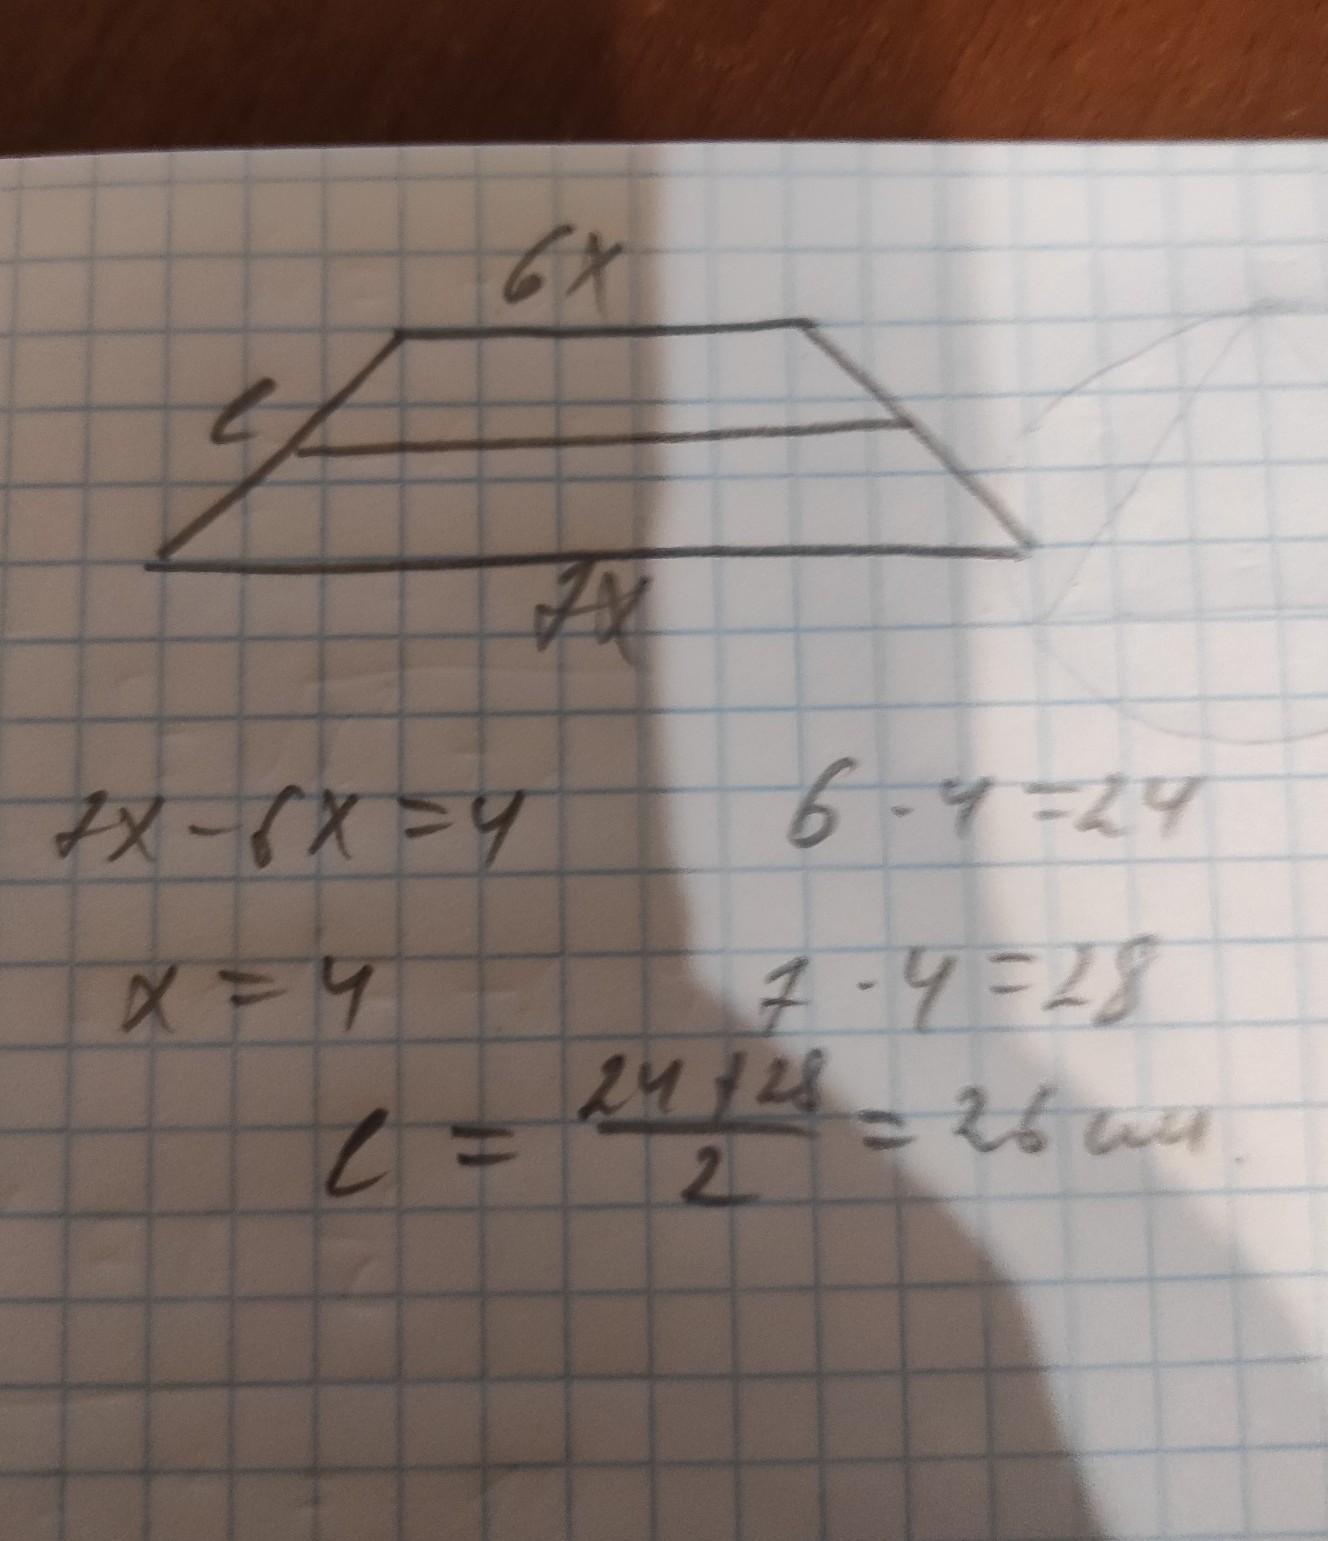 6x
l
7x
7x - 6x = 4
6 · 4 = 24
x = 4
7 · 4 = 28
l = \frac{24 + 28}{2} = 26 см.